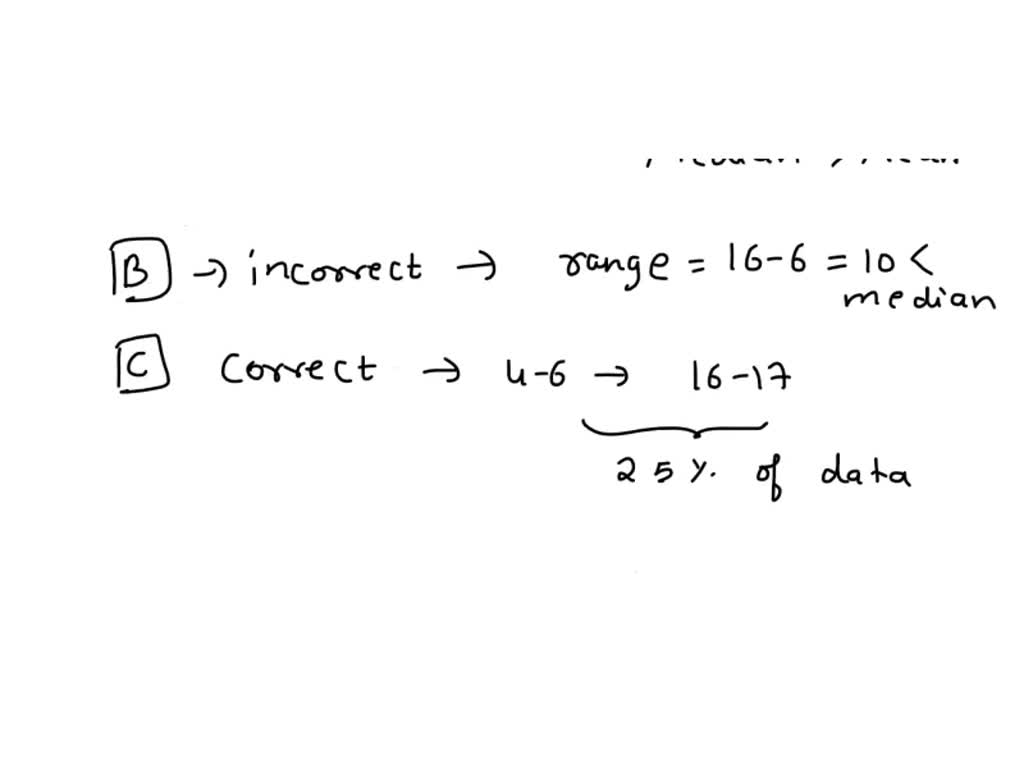 B → incorrect → range = 16-6 = 10 <
median
C Correct → 4-6 → 16-17
25 %. of data